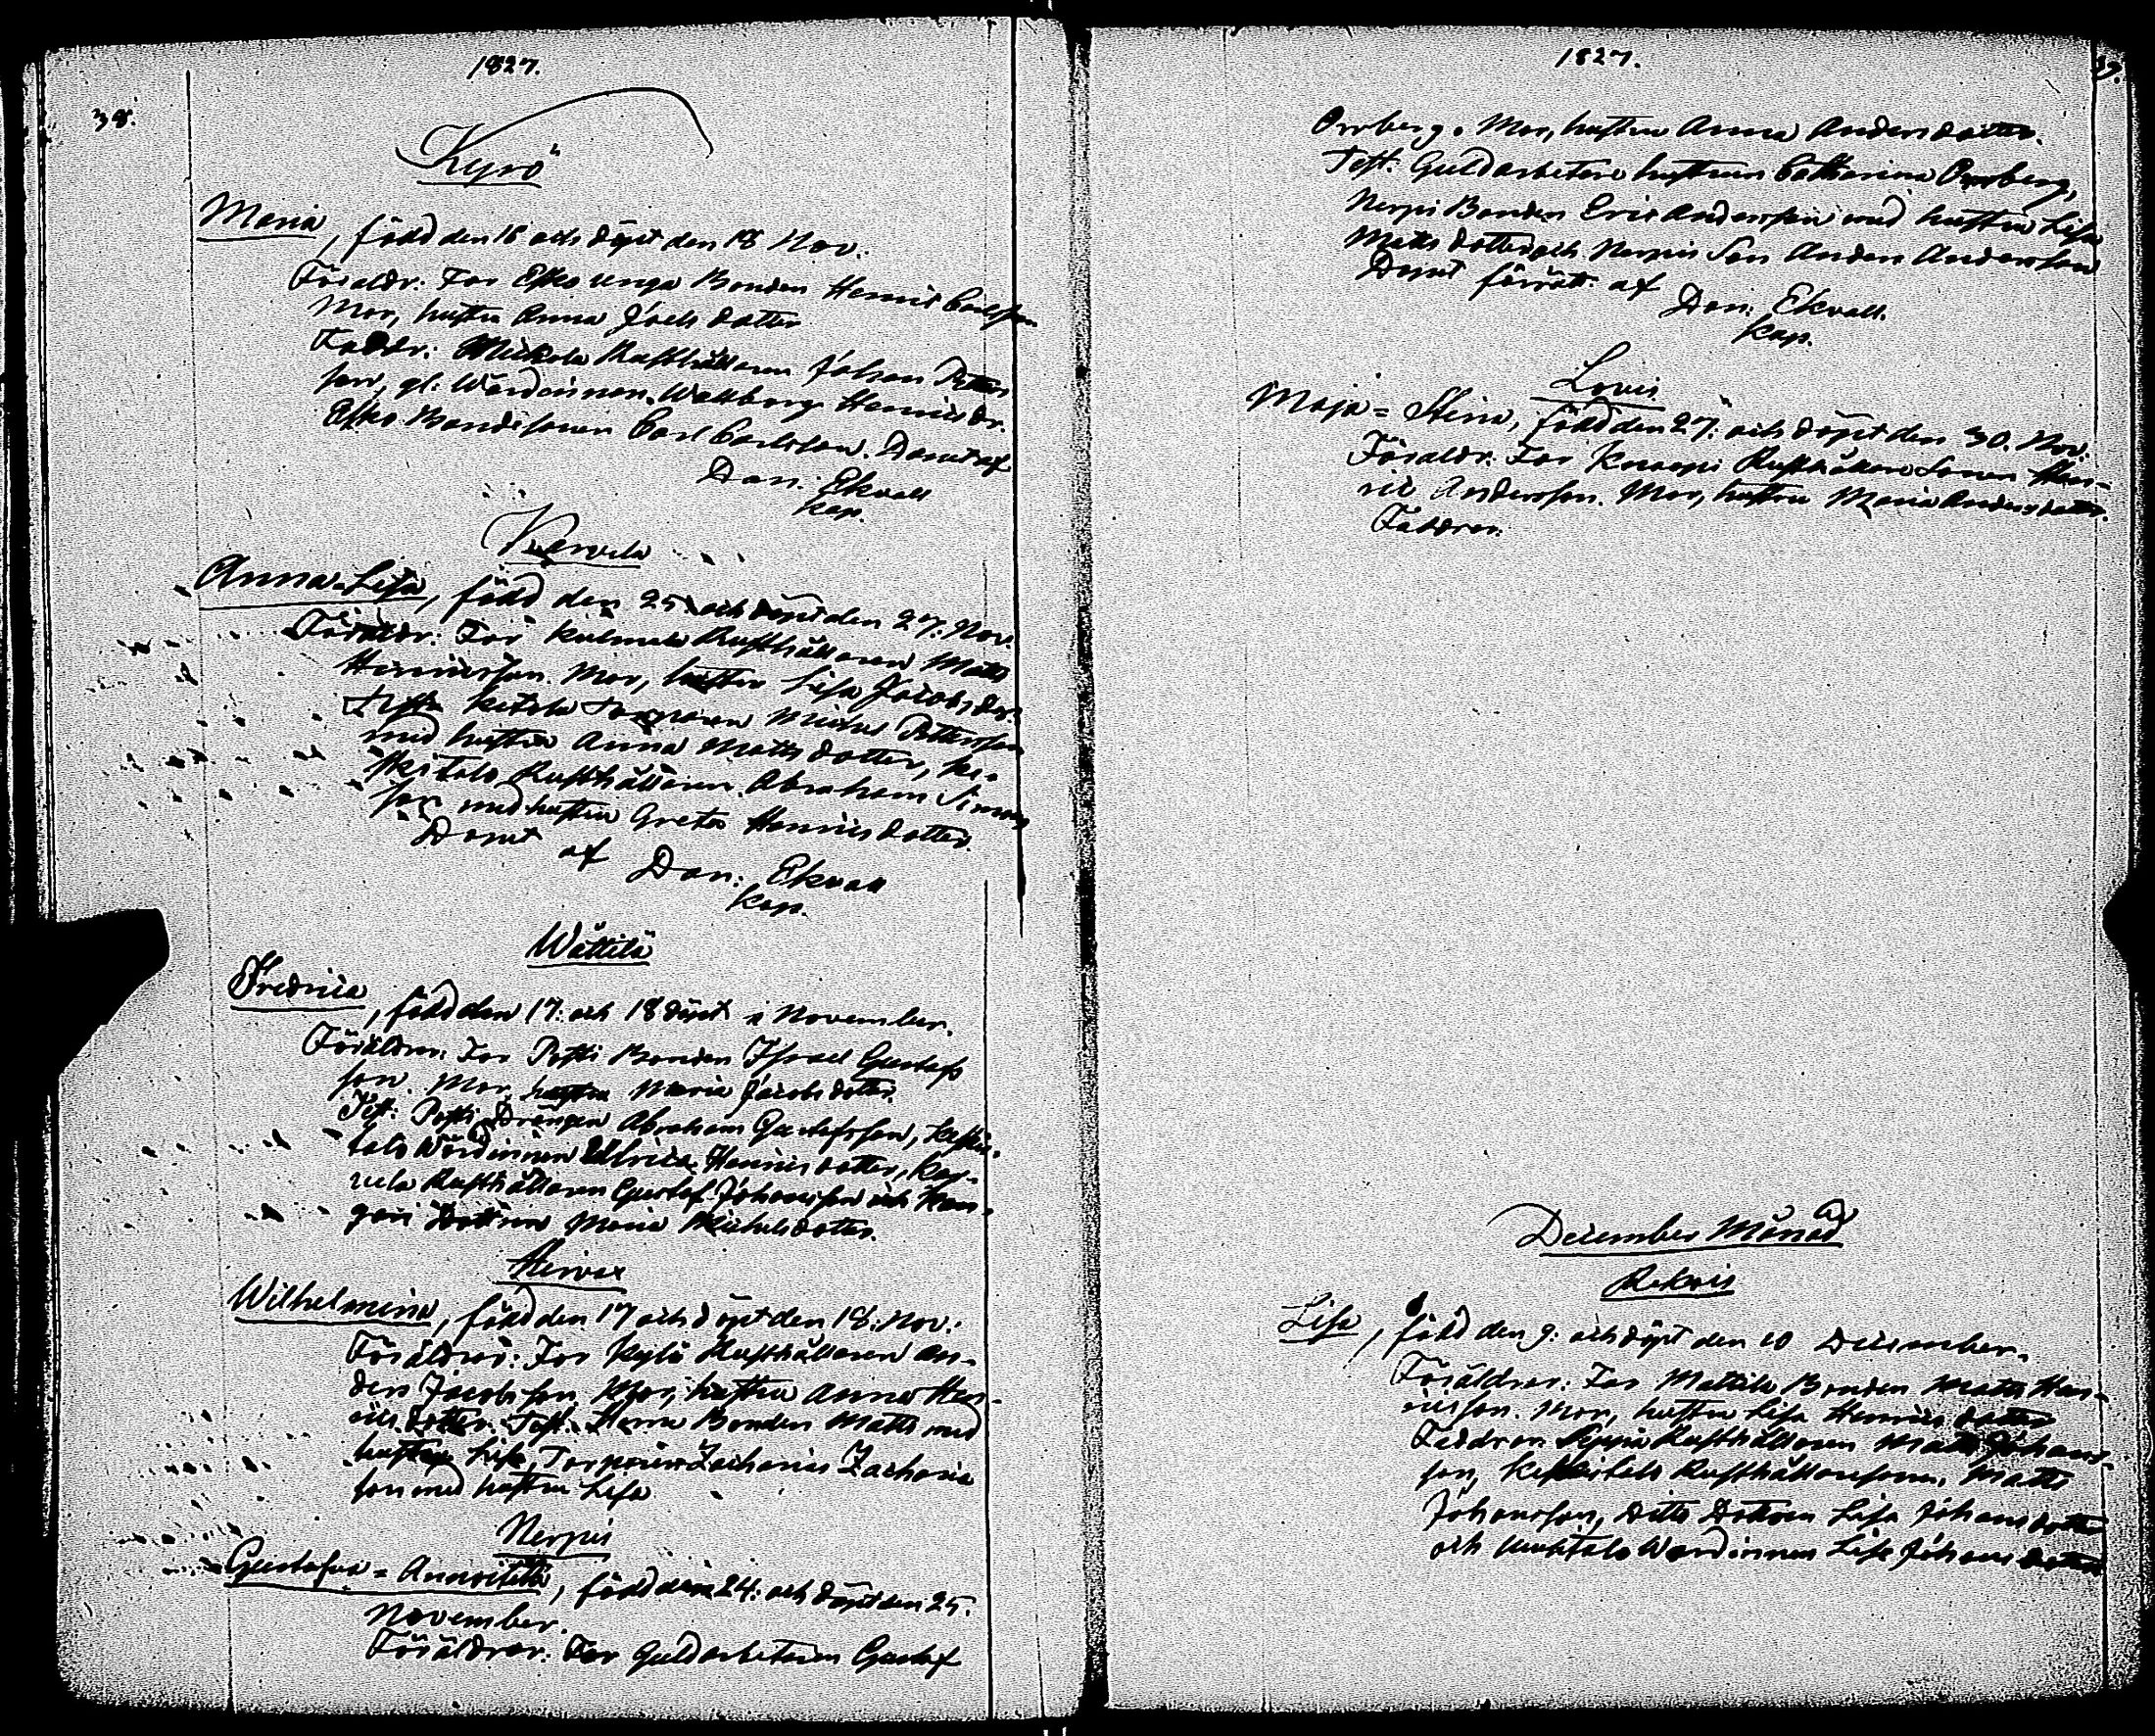 1827.
38.
Kyrö
Maria, född den 16 och döpt den 18 Nov.
Föräldr: Far Esko unga Bonden Henric Carlsson
Mor, hustru Anna Jöels dotter
Faddr: Mickola Rusthållaren Johan Petters
son, gl: Wärdinnan Wallborg Henricsdr.
Esko Bondesonen Carl Carlsson. Döpt af
Dan: Ekvall
Kap.
Karvela
Anna-Lisa, född den 25 och döpt den 27. Nov.
Föräldr: Far Rusthållaren Matts
Henricsson. Mor, hustru Lisa Jacobsdr.
Ketola Torparen Michel Pettersson
med hustru Anna Matts dotter, Ke-
skitalo Rusthållaren Abraham Simons
son med hustru Greta Henrics dotter.
Döpt af Dan: Ekvall
Kap.
Wättilä
Fredrica, född den 17. och 18 döpt i November.
Föräldrar: Far Potti Bonden Israel Gustafs
son. Mor, hustru Maria Jacobs dotter.
Test: Potti Drängen Abraham Gustafsson, Keski-
talo Wärdinnan Ulrica Henrics dotter, Kar-
vela Rusthållaren Gustaf Johansson och Kan-
gari Dottren Maria Michelsdotter.
Hirvax
Wilhelmina, född den 17 och döpt den 18. Nov.
Föräldrar: Far Kylä Rusthållaren An-
ders Jacobsson, Mor, hustru Anna Hen-
rics dotter. Test. Bonden Matts med
hustru Lisa, Torparen Zacharias Zacharia
son med hustru Lisa
Nerpis
Gustafva = Annicetta, född den 24. och döpt den 25.
November.
Föräldrar: Far Guldarbetaren Gustaf
1827.
39.
Orrberg. Mor, hustru Anna Andersdotter.
Test. Guldarbetare hustrun Catharina Orrberg,
Nerpi Bonden Eric Andersson med hustru Lisa
Matts dotter och Nerpis Son Anders Andersson
Döpt förrätt: af Dan: Ekvall.
Kap.
Lovis
Maja = Stina, född den 27. och döpt den 30. Nov.
Föräldr: Far Knaapi Rusthållare Sonen Hen-
ric Andersson. Mor, hustru Maria Andersdotter.
Faddrar.
December Månad
Rekois
Lisa, född den 9. och döpt den 10 December.
Föräldrar: Far Mattila Bonden Matts Hen-
ricsson. Mor, hustru Lisa Henrics dotter
Faddrar Seppä Rusthållaren Matts Johans-
son, Keskitalo Rusthållaresonen Matts
Johansson, Ditto Dottren Lisa Johans dotter
och Uusitalo Wärdinnan Lisa Johans dotter